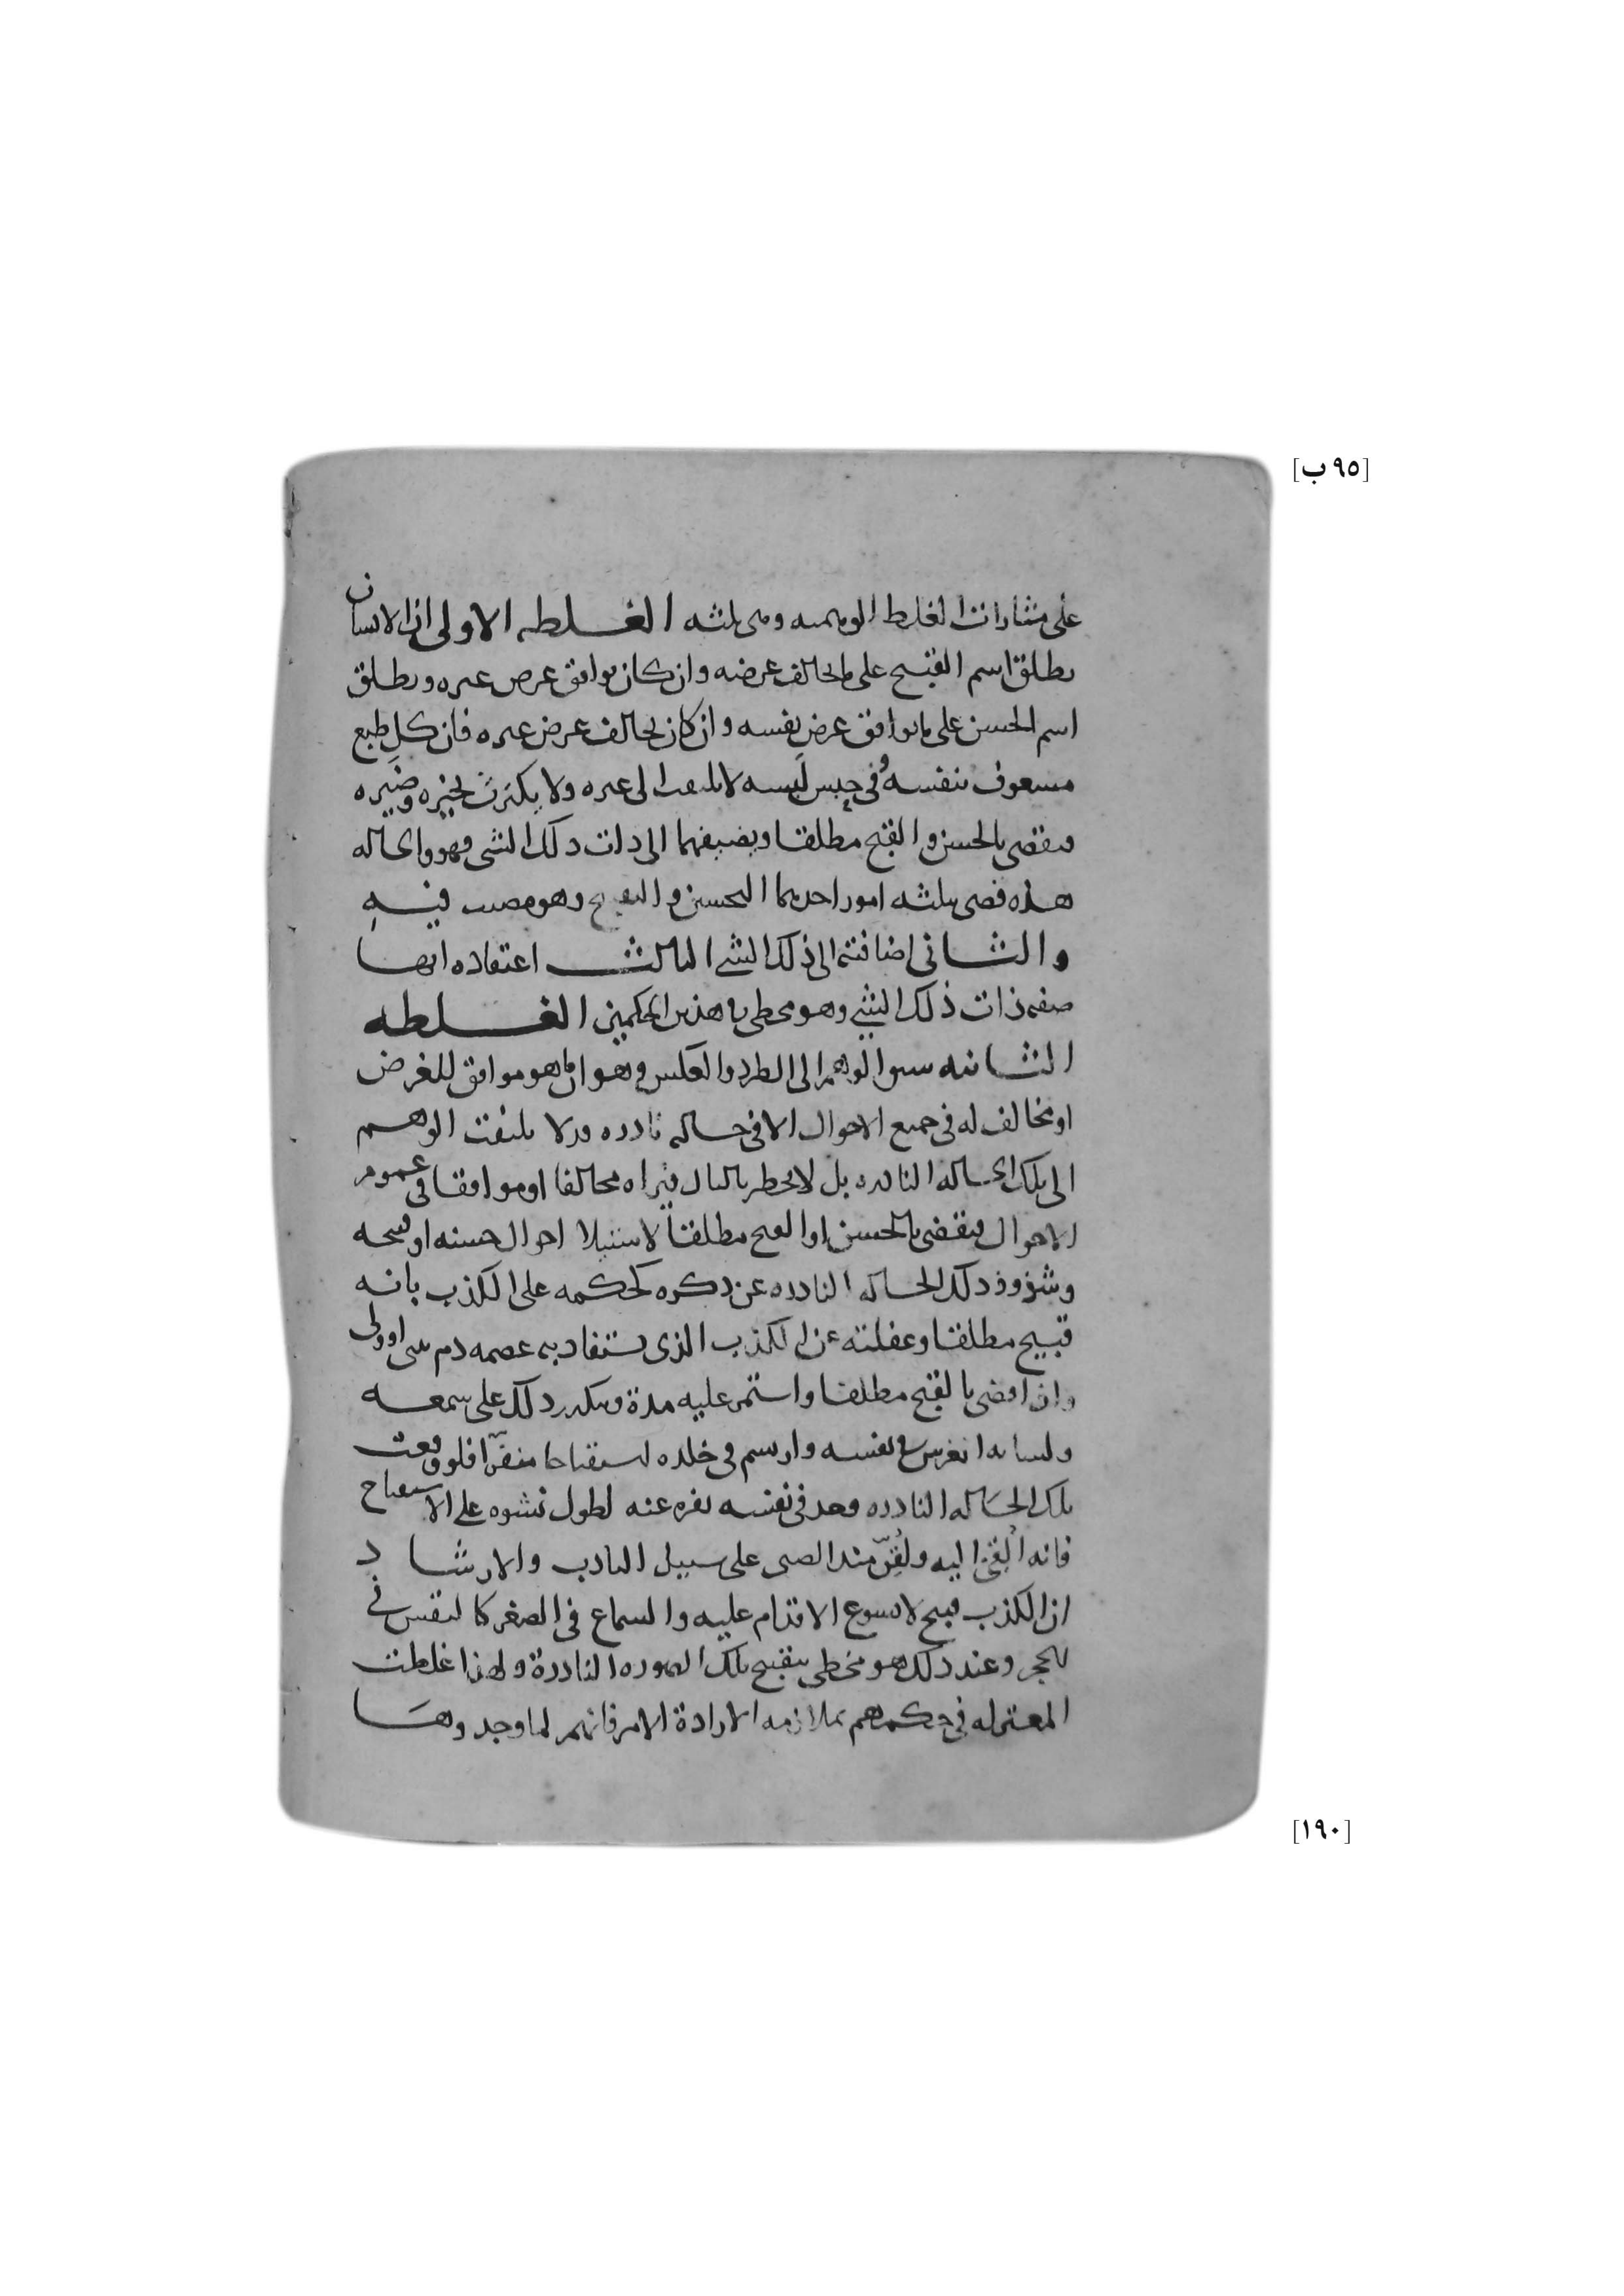 [٩٥ ب]
على مثارات الغلط الوهميه وهى ثلثه الغلطه الاولى ان الانسان
يطلق اسم القبيح على ما يخالف غرضه وان كان يوافق غرض غيره ويطلق
اسم الحسن على ما يوافق غرض نفسه وان كان يخالف غرض غيره فان كل طبع
مشغوف بنفسه وفى لا يلتفت الى غيره ولا يكترث بخيره وضيره
فيقضى بالحسن والقبح مطلقا ويضيفهما الى ذات ذلك الشى فهو والحاله
هذه قضى بثلثه امور احدها التحسين والتقبيح وهو مصيب فيه
والثانى اضافته الى ذلك الشى الثالث اعتقاده انها
صفه ذات ذلك الشى وهو مخطى فى هذين الحكمين الغلطه
الثانيه سبق الوهم الى الطرد والعكس وهو ان ما هو موافق للغرض
او مخالف له فى جميع الاحوال الا فى حاله نادره قد لا يلتفت الوهم
الى تلك الحاله النادره بل لا يخطر بالبال فيراه مخالفا او موافقا فى عموم
الاحوال فيقضى بالحسن او القبح مطلقا لاستيلا احوال حسنه او قبحه
وشذوذ ذلك الحاله النادره عن ذكره كحكمه على الكذب بانه
قبيح مطلقا وغفلته عن الكذب الذى يستفاد به عصمه دم نبى او ولى
واذا قضى بالقبح مطلقا واستمر عليه مدة وتكرر ذلك على سمعه
ولسانه انغرس فى نفسه وارتسم فى خلده استقباحا منفرا فلو وقعت
تلك الحاله النادره وجد فى نفسه نفره عنه لطول نشوه على الاستقباح
فانه ألقى اليه ولقن منذ الصبى على سبيل التاديب والارشاد
ان الكذب قبيح لا يسوغ الاقدام عليه والسماع فى الصغر كالنقش فى
الحجر وعند ذلك هو مخطى بتقبيح تلك الصوره النادرة ولهذا غلطت
المعتزله فى حكمهم بملازمه الارادة الامر فانهم لما وجدوها
[١٩٠]